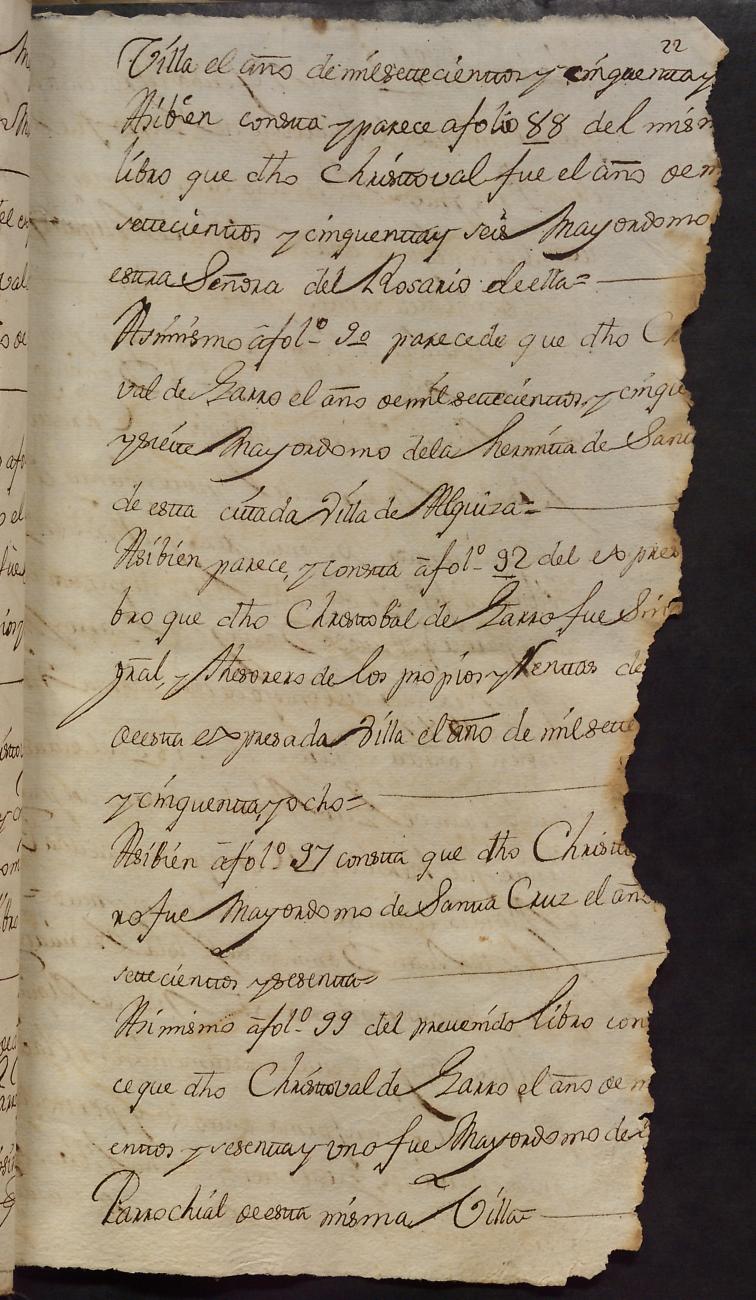 22
Villa el año de mil settecienttos y cinquentta y
Asibien constta y parece a folio 88 del mism
libro que dho Christtoval fue el año de m
settecienttos y cinquentta y seis Mayordomo
esttra Señora del Rosario de ella=
Asimismo a fol.º 90 parece de que dho C
val de Garro el año de mil settecienttos, y cinque
y siette Mayordomo de la hermitta de San
de estta cittada Villa de Alguiza=
Asibien parece, y constta a fol.º 92 del expres
bro que dho Christtobal de Garro fue Sin
gral, y thesorero de los propios y Renttas de
de estta expresada Villa el año de mil sette
y cinquentta, y ocho=
Asibien a fol.º 97 constta que dho Christto
ro fue Mayordomo de Santta Cruz el año
settecienttos y sesentta=
Asimismo a fol.º 99 del prevenido libro con
ce que dho Christtoval de Garro el año de m
enttos y sesentta y uno fue Mayordomo de
Parrochial de estta misma Villa=